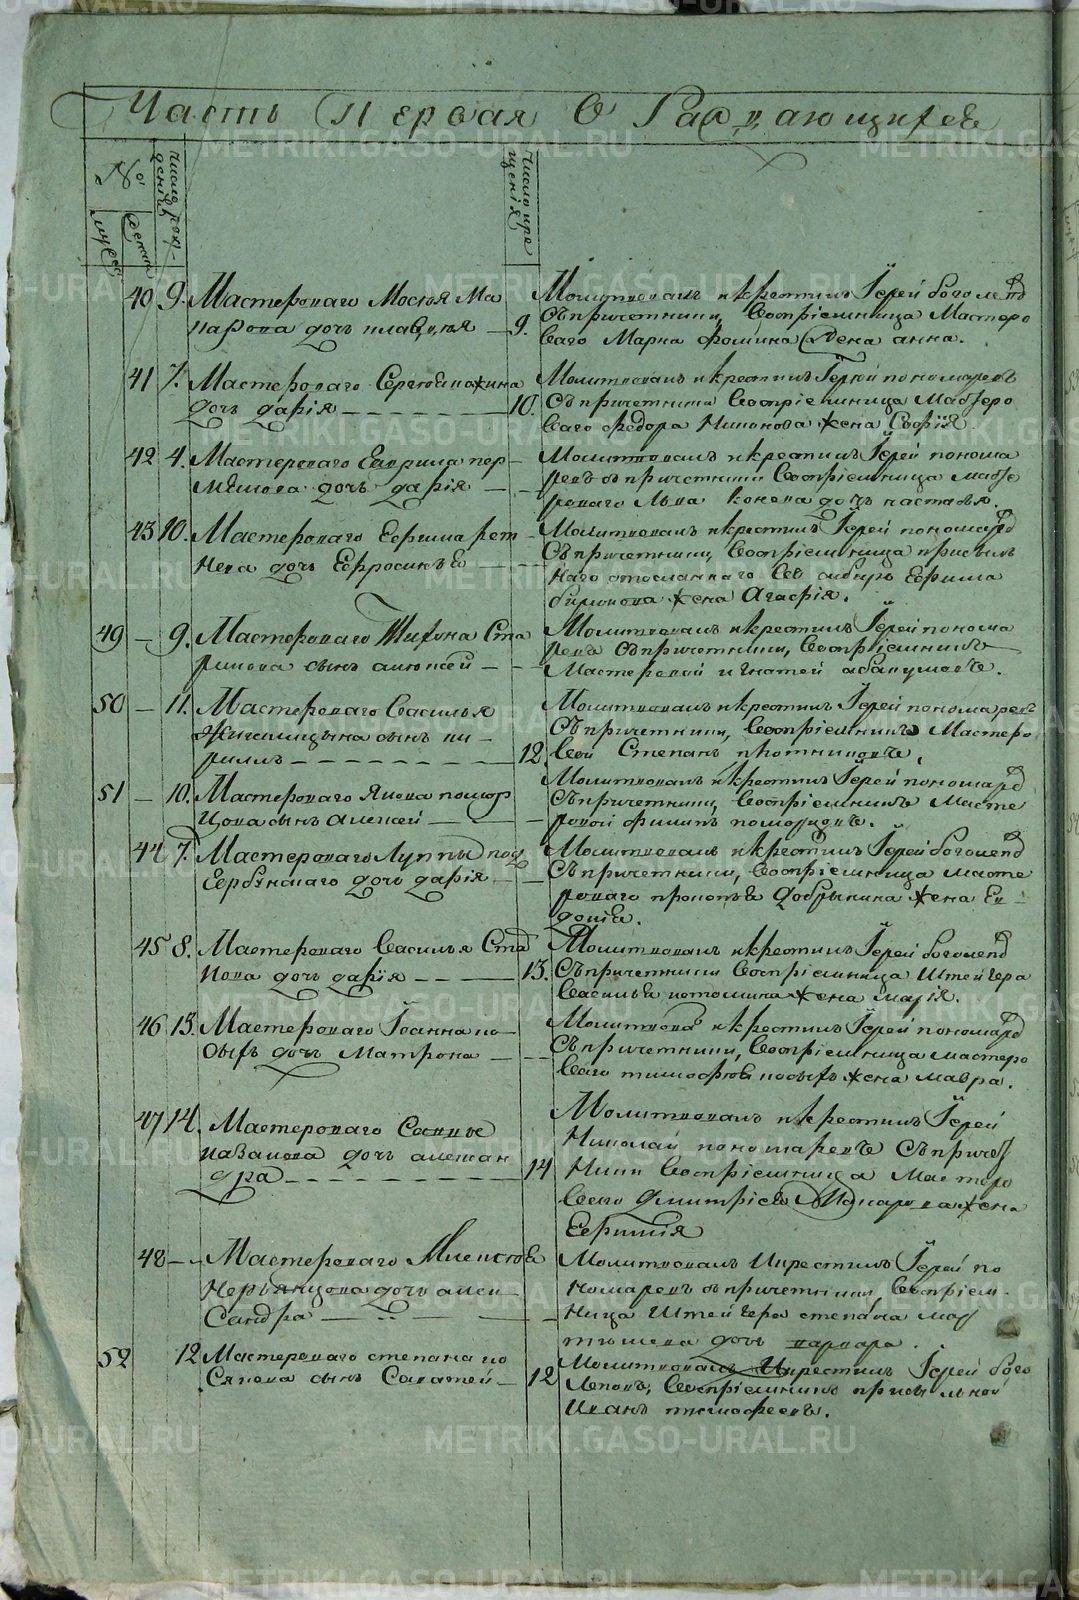 Часть Первая О Раждающихся
№
мужеска
женска
число рождения
число крещения
40 9. Мастероваго Мосея Ма
карова дочь
9.
Молитвовалъ и крестилъ Іерей боголеп
съ причетники, воспріемница Мастеро
ваго Марка Фомина жена анна.
41 7. Мастероваго Сергея
дочь дарія
10.
Молитвовалъ и крестилъ Іерей пономаревъ
съ причетники воспріемница Мастеро
ваго Федора Никонова жена Софія.
42 4. Мастероваго Гаврила пер
мякова дочь дарія
Молитвовалъ и крестилъ Іерей понома
ревъ съ причетники воспріемница масте
роваго Льва конева дочь настасья.
43 10. Мастероваго Ефима рет
нева дочь Ефросинья
Молитвовалъ и крестилъ Іерей пономарев
съ причетники, воспріемница
наго отосланнаго въ сибирь Ефима
жена Агафія.
49 9. Мастероваго Тихона Ста
рикова сынъ алексей
Молитвовалъ и крестилъ Іерей понома
ревъ съ причетники, воспріемникъ
Мастеровой игнатей абакумовъ.
50 11. Мастероваго василья
Жигалицына сынъ ки
рилъ
12.
Молитвовалъ и крестилъ Іерей пономаревъ
съ причетники, воспріемникъ Мастеро
вой Степанъ плотниковъ.
51 10. Мастероваго Якова помор
цова сынъ Алексей
Молитвовалъ и крестилъ Іерей пономарев
съ причетники, воспріемникъ Масте
ровой филипъ поморцовъ.
44 7. Мастероваго Луппы под
дочь дарія
Молитвовалъ и крестилъ Іерей боголеп
съ причетники, воспріемница масте
роваго прокопья Добрынина жена Ев
докия.
45 8. Мастероваго василья Ста
кова дочь дарія
13.
Молитвовалъ и крестилъ Іерей боголеп
съ причетники воспріемница Штейгера
Василья истомина жена марія.
46 13. Мастероваго Іоанна ко
сыхъ дочь Матрона
Молитвова и крестилъ Іерей пономарев
съ причетники, воспріемница мастеро
ваго тимофея косыхъ жена мавра.
47 14. Мастероваго Саввы
казакова дочь алексан
дра
14
Молитвовалъ и крестилъ Іерей
Николай пономаревъ съ причет
ники воспріемница Мастеро
ваго Дмитрія Макарова жена
Ефимія
48 Мастероваго Алексея
Черьянцова дочь алек
сандра
Молитвовалъ и крестилъ Іерей по
номаревъ съ причетники, воспріем
ница Штейгера степана
дочь варвара.
52 12 Мастероваго степана по
сякова сынъ Саватей
12
Молитвовалъ и крестилъ Іерей бого
леповъ, воспріемникъ
Иванъ тимофеевъ.
METRIKI.GASO-URAL.RU